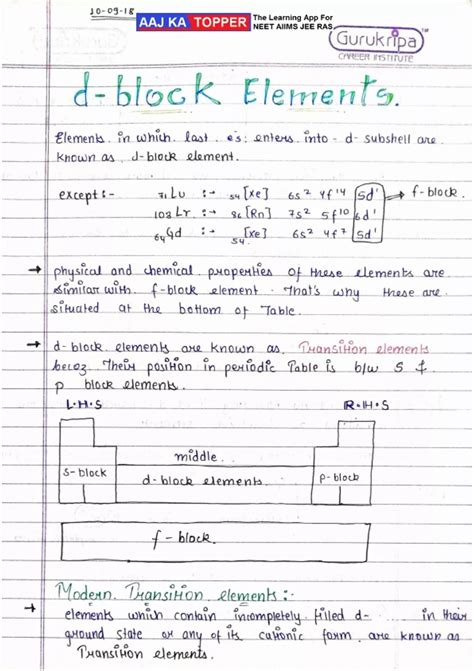 10-09-18
AAJ KA TOPPER
The Learning App For
NEET AIIMS JEE RAS
Gurukripa™
CAREER INSTITUTE
d-block Elements.
Elements in which last e⁻s enters into -d- subshell are
known as d-block element.
except :- ₇₁Lu :→ ₅₄[Xe] 6s² 4f¹⁴ 5d¹ → f-block.
₁₀₃Lr :→ ₈₆[Rn] 7s² 5f¹⁰ 6d¹
₆₄Gd :→ ₅₄[Xe] 6s² 4f⁷ 5d¹
→ physical and chemical properties of these elements are
similar with f-block element. That's why these are
situated at the bottom of Table.
→ d-block elements are known as Transition elements
becoz Their position in periodic Table is b/w S &
p block elements.
L·H·S
R·H·S
middle
s-block
d-block elements.
p-block
f-block.
Modern Transition elements:-
→ elements which contain incompletely filled d- in their
ground state or any of its cationic form are known as
Transition elements.